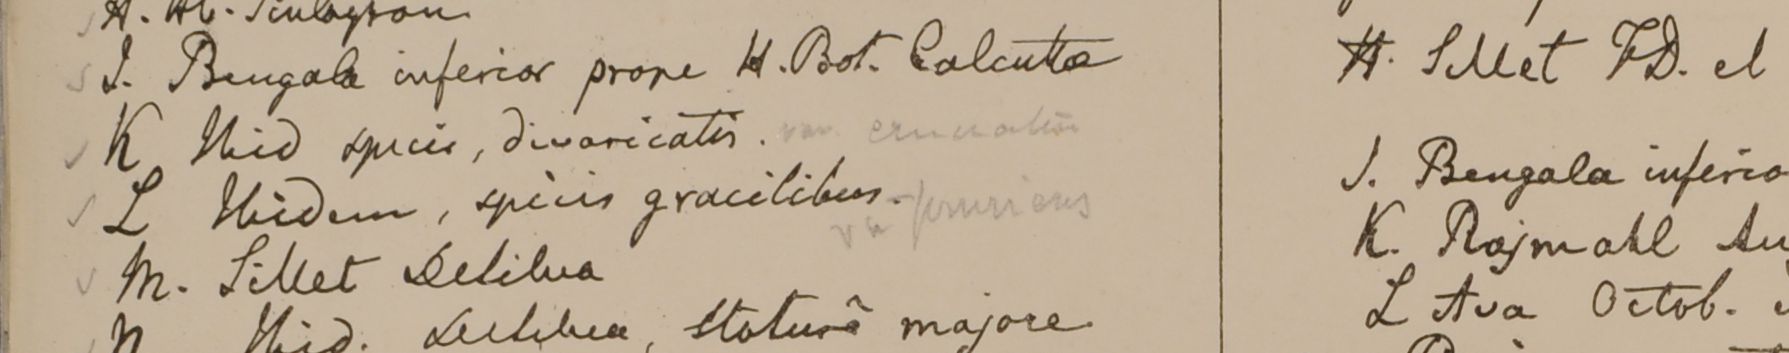 J. Bengala inferior prope H. Bot. Calcutta
K Ibid spicis, divaricatis. var.
L Ibidem, spicis gracilibus. var
M. Sillet Debilua
N Ibid. Debilua, staturâ majore
H. Sillet F.D. et
J. Bengala inferio
K. Rajmahl Au
L Ava Octob.